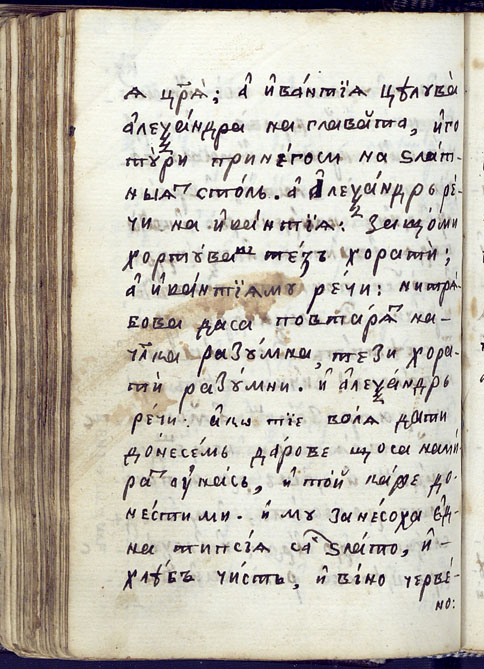 ѧ цр҃ѧ̀; а҆ и҆ва́нтїѧ цѣлꙋва̀
але҆ѯа́ндра на глава̀та, и҆го
тꙋ̀ри при не́госи на ѕла́т-
ныѧт столь. а҆ А҆леѯа́ндрь ре́-
чи на и҆ва́нтїѧ: защо́ми
хортꙋ́ваш те́зъ хорати̂;
а҆ и҆ва́нтїѧ мꙋ ре́чи: ни трѧ̀-
бова даса повтарѧ̀т на-
чл҃ка разꙋ́мна, те́зи хора-
ти̂ разꙋ́мни. и҆ а҆леѯа́ндрь
ре́чи. а҆ко тїе во́лѧ да ти
до́несемь да́рове щоса нами́-
рат ꙋ҆на́сь, и҆ то́й каже до-
не́стими. и҆ мꙋ зане́соха е҆д-
на типсїѧ са̂с ѕла́то, и҆-
хлѣ́бъ чи́сть, и҆ ві́но черве́-
но: